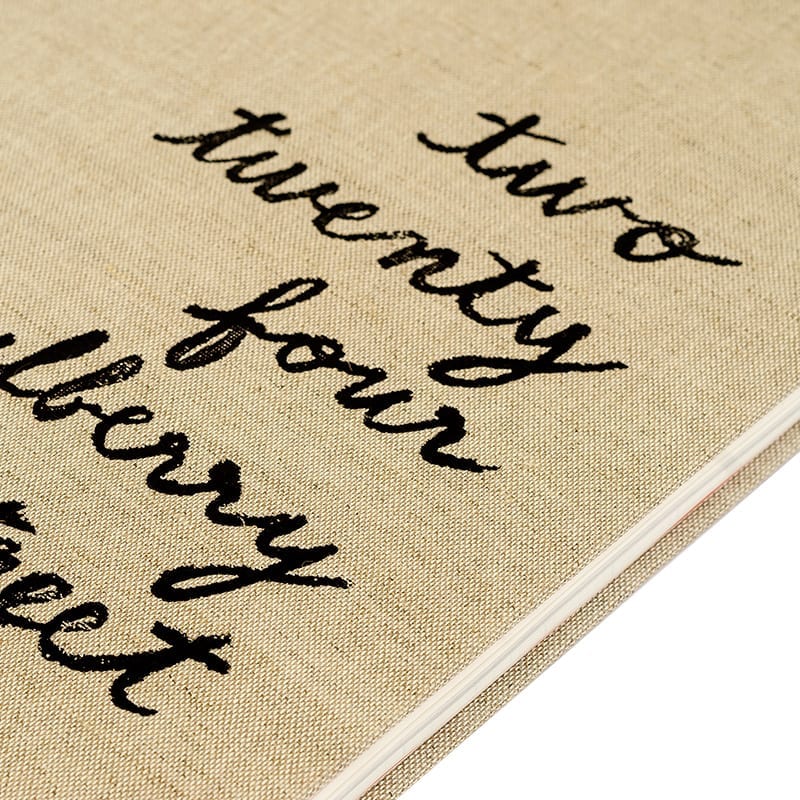 two
twenty
four
ulberry
reet